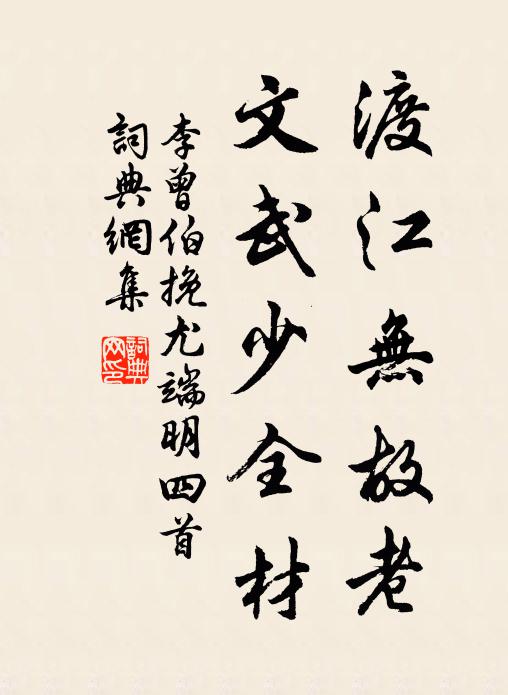 渡江無故老
文武少全材
李曾伯挽尤端明四首
詞典網集
詞典網印